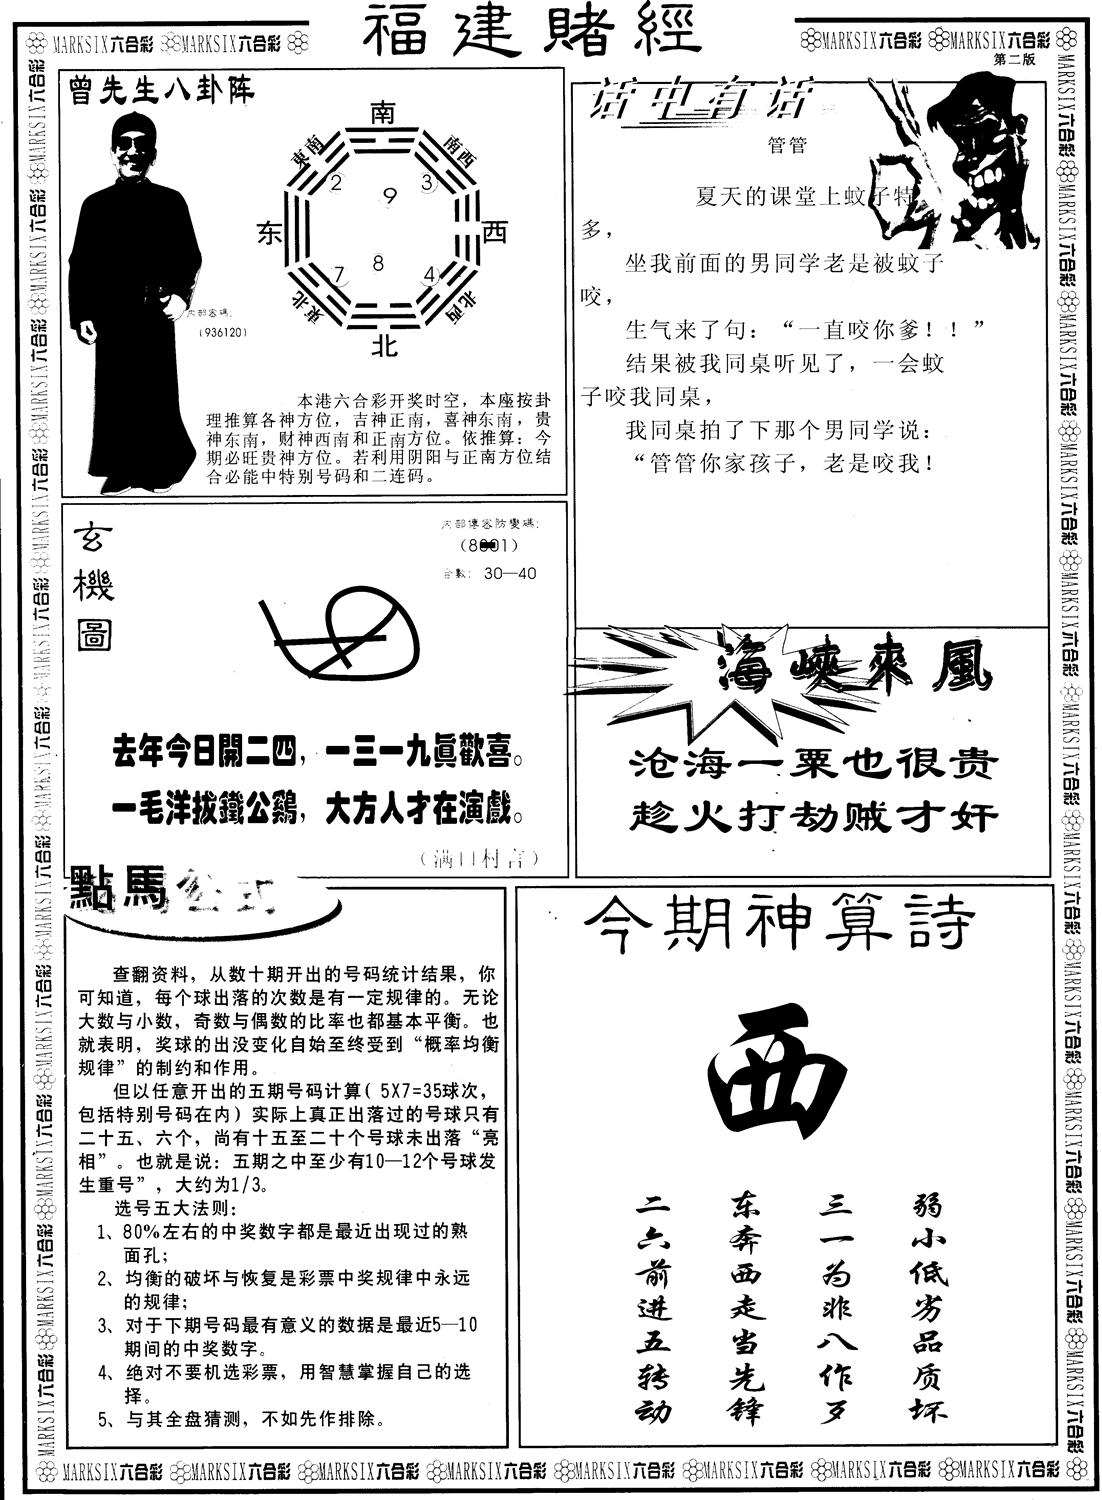 福建賭經
MARKSIX六合彩 MARKSIX六合彩
MARKSIX六合彩 MARKSIX六合彩
第二版
曾先生八卦阵
南
東南
南西
2
9
3
东
西
7
8
4
東北
北西
北
内部密碼:
(936120)
本港六合彩开奖时空，本座按卦
理推算各神方位，吉神正南，喜神东南，贵
神东南，财神西南和正南方位。依推算：今
期必旺贵神方位。若利用阴阳与正南方位结
合必能中特别号码和二连码。
话中有话
管管
夏天的课堂上蚊子特
多，
坐我前面的男同学老是被蚊子
咬，
生气来了句：“一直咬你爹！！”
结果被我同桌听见了，一会蚊
子咬我同桌，
我同桌拍了下那个男同学说：
“管管你家孩子，老是咬我！
玄機圖
内部傳密防變碼:
合數: 30—40
去年今日開二四，一三一九眞歡喜。
一毛洋拔鐵公鷄，大方人才在演戲。
（满口村言）
海峽來風
沧海一粟也很贵
趁火打劫贼才奸
點馬公式
查翻资料，从数十期开出的号码统计结果，你
可知道，每个球出落的次数是有一定规律的。无论
大数与小数，奇数与偶数的比率也都基本平衡。也
就表明，奖球的出没变化自始至终受到“概率均衡
规律”的制约和作用。
但以任意开出的五期号码计算( 5X7=35球次，
包括特别号码在内）实际上真正出落过的号球只有
二十五、六个，尚有十五至二十个号球未出落“亮
相”。也就是说：五期之中至少有10—12个号球发
生重号”，大约为1/3。
选号五大法则：
1、80%左右的中奖数字都是最近出现过的熟
面孔；
2、均衡的破坏与恢复是彩票中奖规律中永远
的规律；
3、对于下期号码最有意义的数据是最近5—10
期间的中奖数字。
4、绝对不要机选彩票，用智慧掌握自己的选
择。
5、与其全盘猜测，不如先作排除。
今期神算詩
西
弱小低劣品质坏
三一为非八作歹
东奔西走当先锋
二六前进五转动
MARKSIX六合彩 MARKSIX六合彩 MARKSIX六合彩 MARKSIX六合彩 MARKSIX六合彩 MARKSIX六合彩 MARKSIX六合彩 MARKSIX六合彩